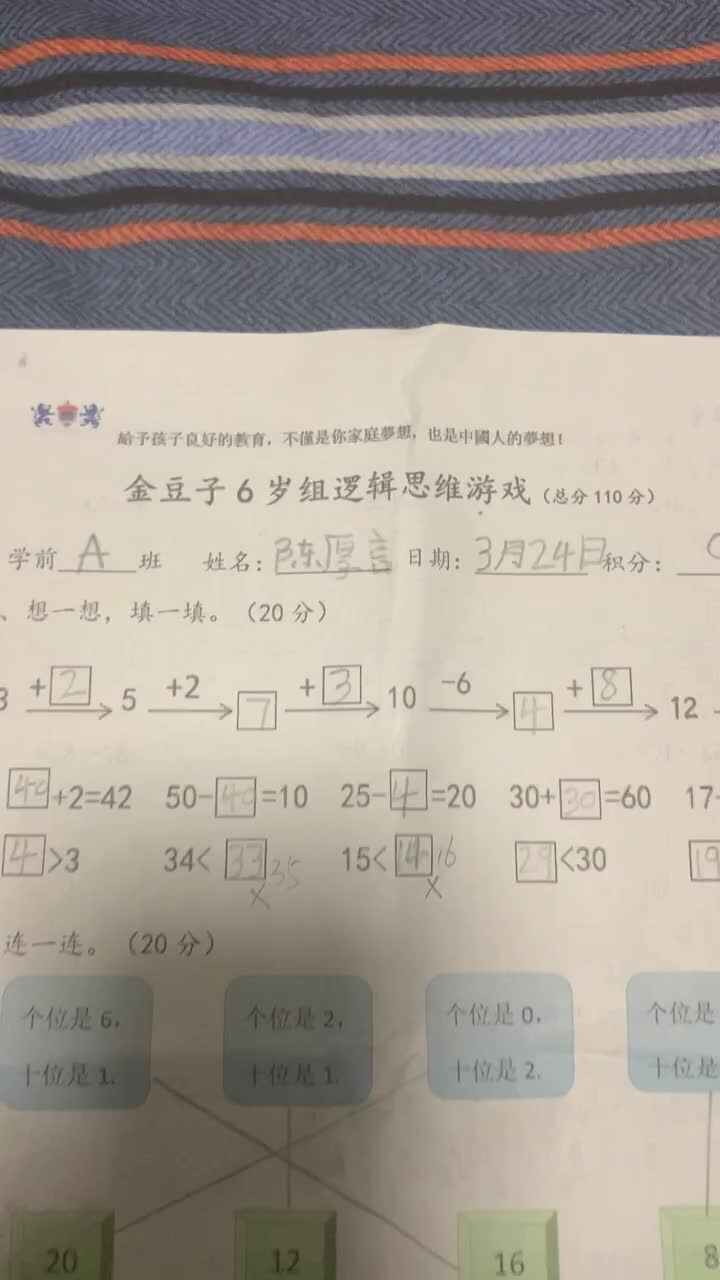 給予孩子良好的教育，不僅是你家庭夢想，也是中國人的夢想！
金豆子 6 岁组逻辑思维游戏（总分 110 分）
学前 A 班 姓名：陈厚言 日期：3月24日 积分：
、想一想，填一填。（20 分）
3 +2 5 +2 7 +3 10 -6 4 +8 12
40+2=42 50-40=10 25-4=20 30+30=60 17-
4>3 34<33 35 15<14 16 29<30 19
× ×
连一连。（20 分）
个位是 6， 个位是 2， 个位是 0， 个位是
十位是 1. 十位是 1. 十位是 2. 十位是
20 12 16 8